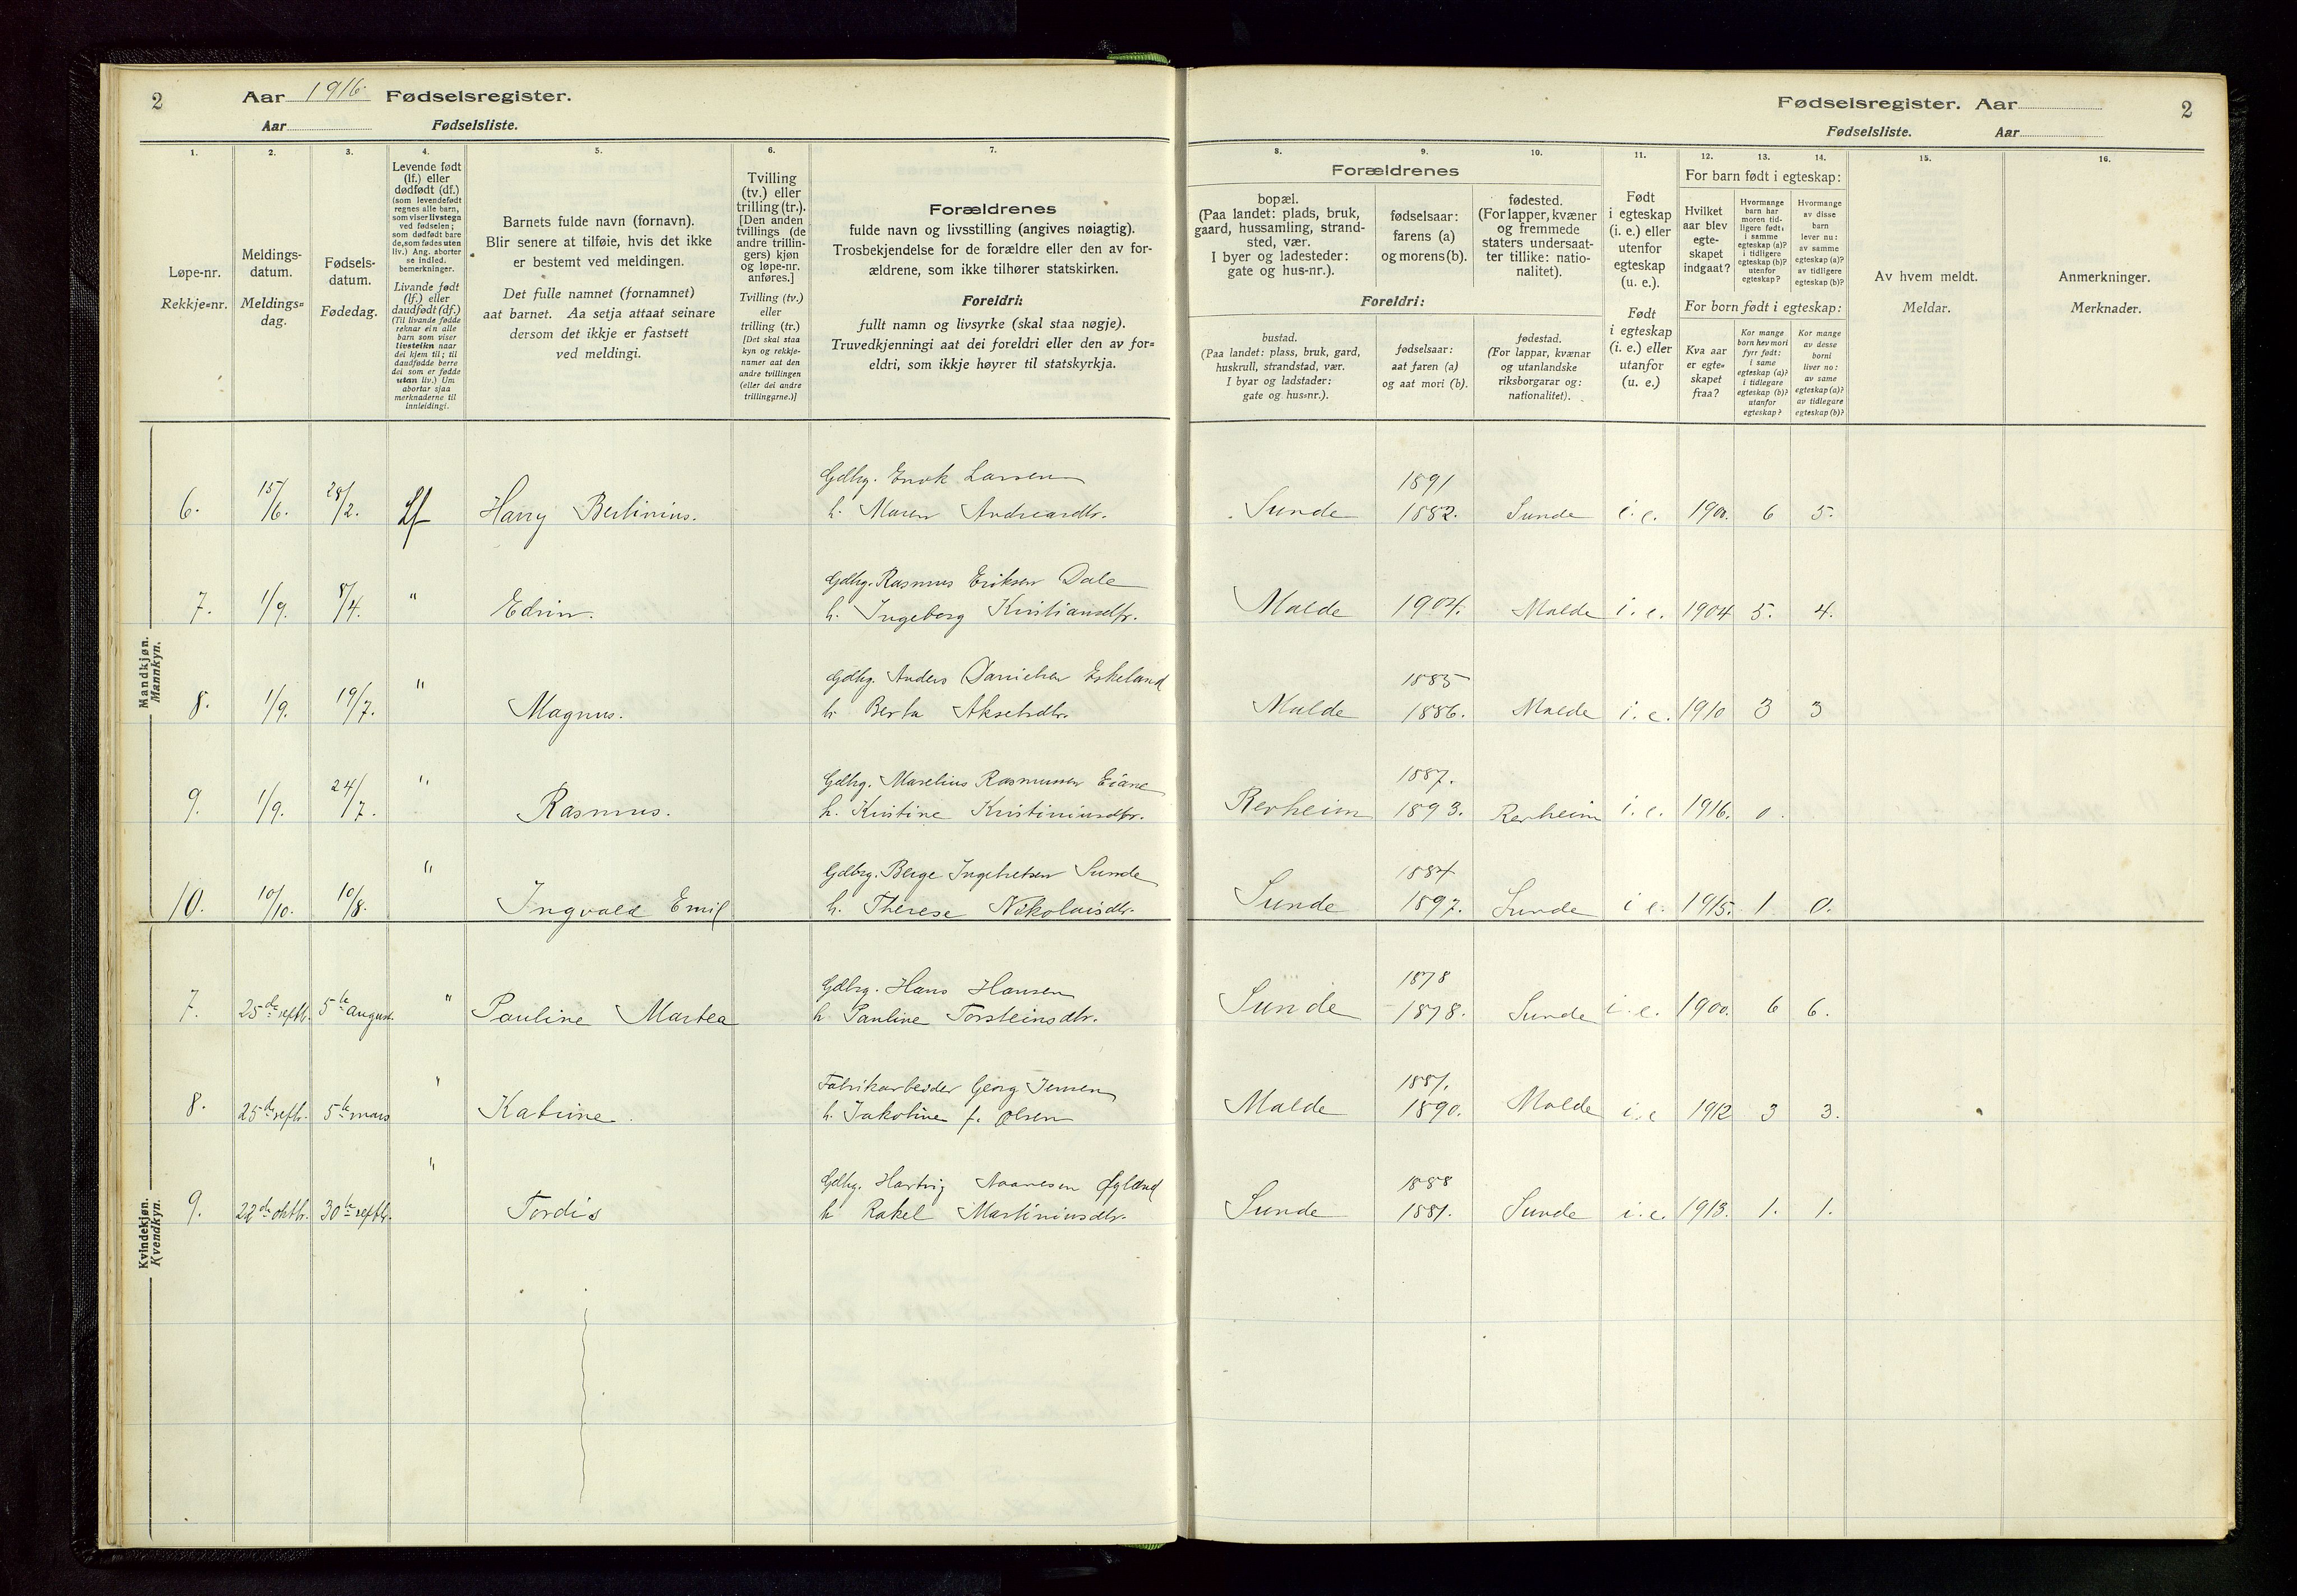 2
Aar 1916. Fødselsregister.
Aar Fødselsliste.
Fødselsregister. Aar
2
Fødselsliste. Aar
1. 2. 3. 4. 5. 6. 7. 8. 9. 10. 11. 12. 13. 14. 15. 16.
Løpe-nr.
Rekkje=nr.
Meldings-
datum.
Meldings=
dag.
Fødsels-
datum.
Fødedag.
Levende født
(lf.) eller
dødfødt (df.)
(som levendefødt
regnes alle barn,
som viser livstegn
ved fødselen;
som dødfødt bare
de, som fødes uten
liv.) Ang. aborter
se indled.
bemerkninger.
Livande født
(lf.) eller
daudfødt (df.)
(Til livande fødde
reknar ein alle
barn som viser
livsteikn naar
dei kjem til; til
daudfødde berre
dei som er fødde
utan liv.) Um
abortar sjaa
merknaderne til
innleidingi.
Barnets fulde navn (fornavn).
Blir senere at tilføie, hvis det ikke
er bestemt ved meldingen.
Det fulle namnet (fornamnet)
aat barnet. Aa setja attaat seinare
dersom det ikkje er fastsett
ved meldingi.
Tvilling
(tv.) eller
trilling (tr.).
[Den anden
tvillings (de
andre trillin-
gers) kjøn
og løpe-nr.
anføres.]
Tvilling (tv.)
eller
trilling (tr.)
[Det skal staa
kyn og rekkje-
numer aat den
andre tvillingen
(eller dei andre
trillingarne.)]
Forældrenes
fulde navn og livsstilling (angives nøiagtig).
Trosbekjendelse for de forældre eller den av for-
ældrene, som ikke tilhører statskirken.
Foreldri:
fullt namn og livsyrke (skal staa nøgje).
Truvedkjenningi aat dei foreldri eller den av for=
eldri, som ikkje høyrer til statskyrkja.
Forældrenes
bopæl.
(Paa landet: plads, bruk,
gaard, hussamling, strand-
sted, vær.
I byer og ladesteder:
gate og hus-nr.).
fødselsaar:
farens (a)
og morens (b).
fødested.
(For lapper, kvæner
og fremmede
staters undersaat-
ter tillike: natio-
nalitet).
Foreldri:
bustad.
(Paa landet: plass, bruk, gard,
huskrull, strandstad, vær.
I byar og ladstader:
gate og hus=nr.).
fødselsaar:
aat faren (a)
og aat mori (b).
fødestad.
(For lappar, kvænar
og utanlandske
riksborgarar og:
nationalitet).
Født
i egteskap
(i. e.) eller
utenfor
egteskap
(u. e.).
Født
i egteskap
(i. e.) eller
utanfor
(u. e.)
For barn født i egteskap:
Hvilket
aar blev
egte-
skapet
indgaat?
Hvormange
barn har
moren tid-
ligere født:
i samme
egteskap (a)?
i tidligere
egteskap (b)?
utenfor
egteskap?
Hvormange
av disse
barn
lever nu:
av samme
egteskap (a)?
av tidligere
egteskap (b)?
For born født i egteskap:
Kva aar
er egte=
skapet
fraa?
Kor mange
born hev mori
fyrr født:
i same
egteskap (a)?
i tidlegare
egteskap (b)?
utanfor
egteskap?
Kor mange
av desse
borni
liver no:
av same
egteskap (a)?
av tidlegare
egteskap (b)?
Av hvem meldt.
Meldar.
Anmerkninger.
Merknader.
Mandkjøn.
Mannkyn.
Gdbrg. Enok Larsen 1891
6. 15/6. 28/2. Lf Harry Berlinius. h. Maren Andreasdtr. Sunde 1882. Sunde i. e. 190. 6 5.
Gdbrg. Rasmus Eriksen Dale
7. 1/9. 8/4. " Edvin. h. Ingeborg Kristiansdtr. Malde 1904. Malde i. e. 1904 5. 4.
Gdbrg. Anders Danielsen Eskeland 1885
8. 1/9. 19/7. " Magnus. h. Berta Akselsdtr. Malde 1886. Malde i. e. 1910 3 3
Gdbrg. Marelius Rasmussen Eiane 1887.
9. 1/9. 24/7. " Rasmus. h. Kristine Kristiniusdtr. Revheim 1893. Revheim i. e. 1916. 0.
Gdbrg. Berge Ingebretsen Sunde 1884
10. 10/10. 10/8. " Ingvald Emil h. Therese Nikolaisdtr. Sunde 1897. Sunde i e. 1915. 1. 0.
Kvindekjøn.
Kvendkyn.
Gdbrg. Hans Hansen 1878
7. 25de septbr. 5te august. " Pauline Martea h. Pauline Torsteinsdtr. Sunde 1878. Sunde i. e. 1900. 6 6.
Fabrikarbeider Georg Jensen 1887.
8. 25de septbr. 5te mars " Katrine. h. Jakobine f. Olsen Malde 1890. Malde i. e 1912 3 3.
Gdbrg. Hartvig Øgland 1888
9. 22de oktbr. 30te septbr. " Tordis h Rakel Martiniusdtr. Sunde 1881. Sunde i. e. 1913. 1. 1.